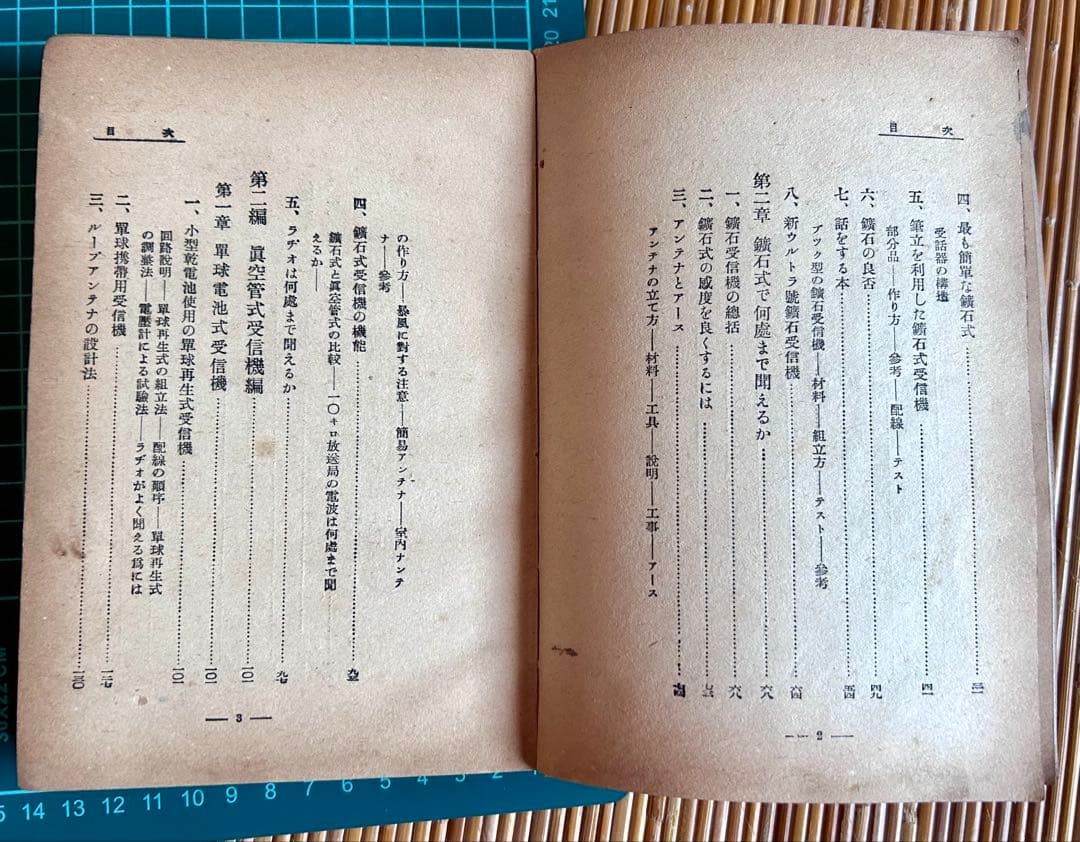 目次
四、最も簡單な鑛石式
受話器の構造
五、筆立を利用した鑛石式受信機 四一
部分品——作り方——參考——配線——テスト
六、鑛石の良否 四九
七、話をする本 五四
ブック型の鑛石受信機——材料——組立方——テスト——參考
八、新ウルトラ號鑛石受信機 六四
第二章 鑛石式で何處まで聞えるか 六八
一、鑛石受信機の總括 六八
二、鑛石式の感度を良くするには
三、アンテナとアース
アンテナの立て方——材料——工具 說明——工事——アース
— 2 —
目次
の作り方——暴風に對する注意——簡易アンテナ——室內アンテ
ナ——參考
四、鑛石式受信機の機能
鑛石式と眞空管式の比較——一〇キロ放送局の電波は何處まで聞
えるか——
五、ラヂオは何處まで聞えるか 九七
第二編 眞空管式受信機編 一〇一
第一章 單球電池式受信機 一〇一
一、小型乾電池使用の單球再生式受信機 一〇一
回路說明——單球再生式の組立法——配線の順序——單球再生式
の調整法——電壓計による試驗法——ラヂオがよく聞える爲には
二、單球携帶用受信機 一二七
三、ループアンテナの設計法 一三〇
— 3 —
21
20
30X22 CM
15 14 13 12 11 10 9 8 7 6 5 4 3 2